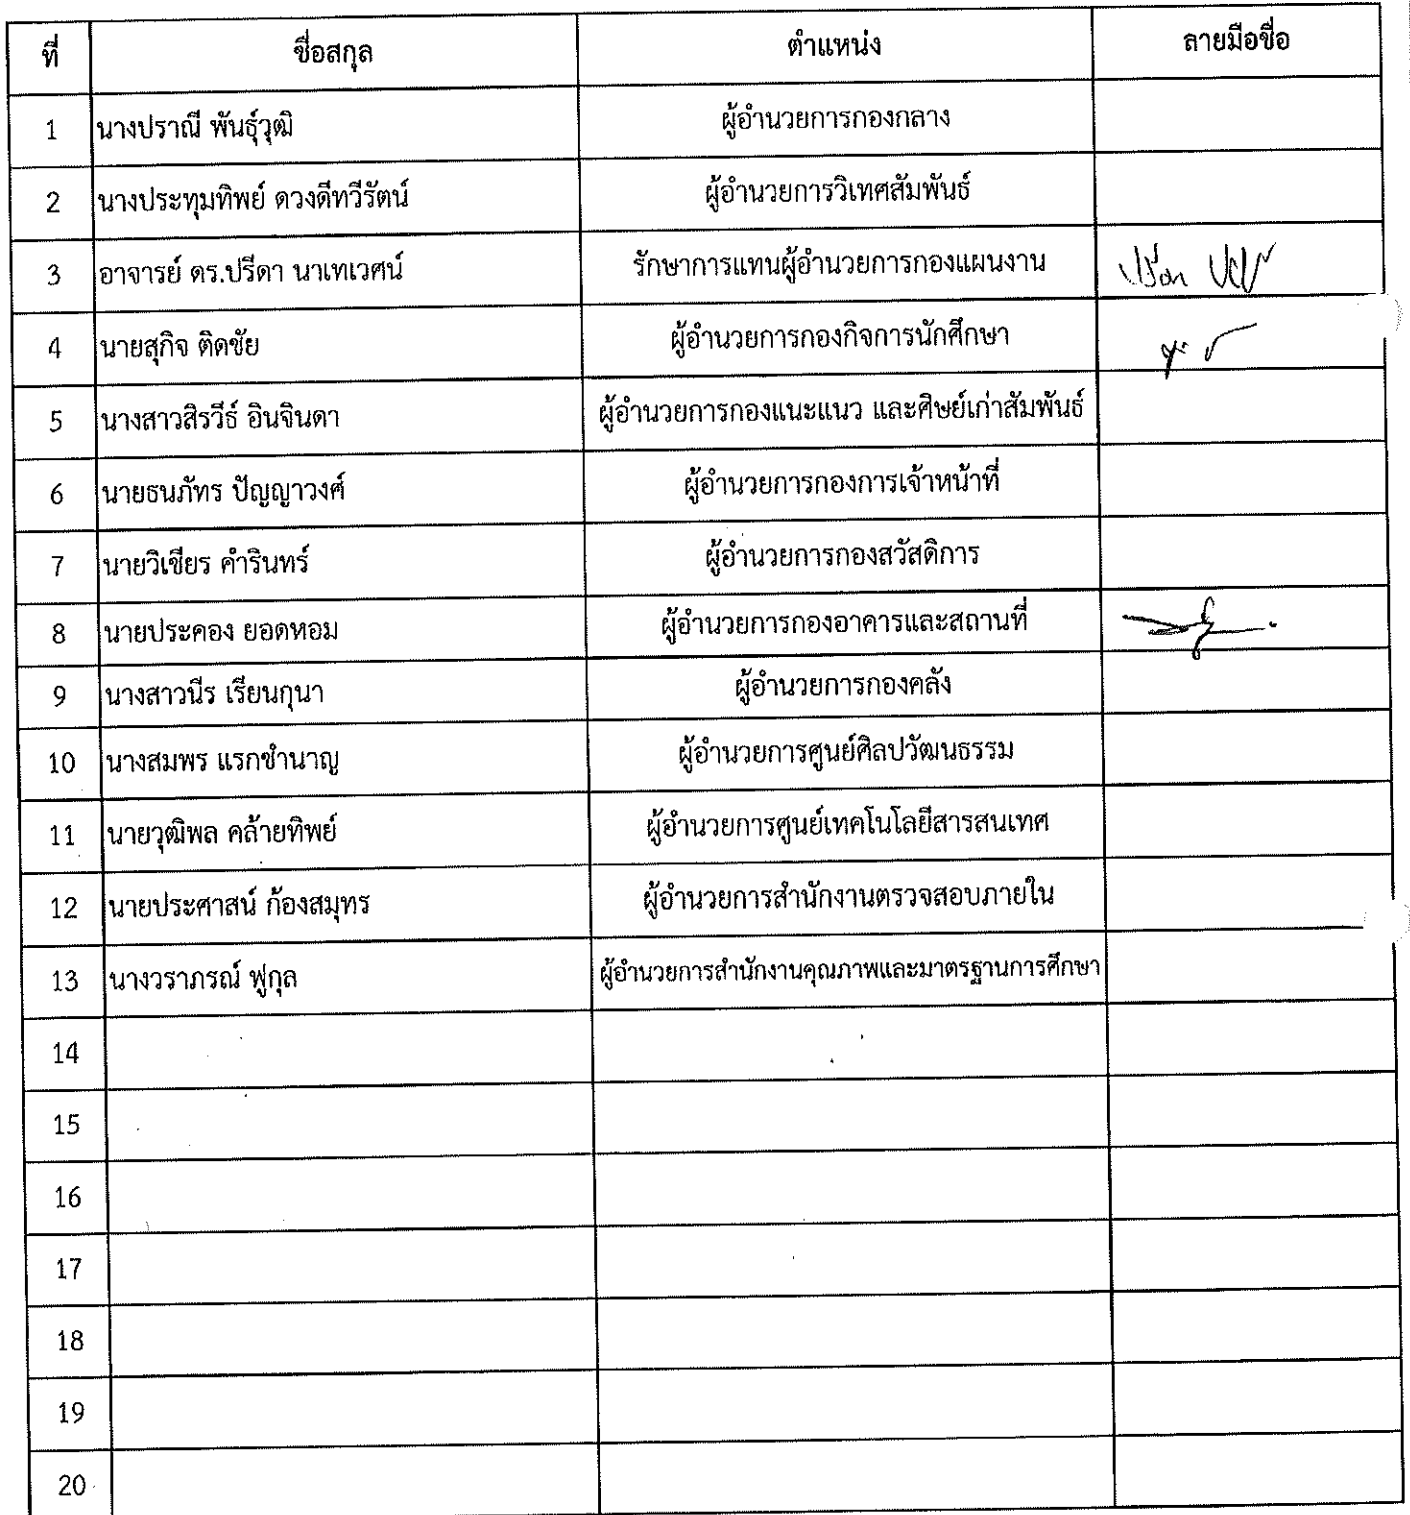 ที่ ชื่อสกุล ตำแหน่ง ลายมือชื่อ
1 นางปราณี พันธุ์วุฒิ ผู้อำนวยการกองกลาง
2 นางประทุมทิพย์ ดวงดีทวีรัตน์ ผู้อำนวยการวิเทศสัมพันธ์
3 อาจารย์ ดร.ปรีดา นาเทเวศน์ รักษาการแทนผู้อำนวยการกองแผนงาน
4 นายสุกิจ ติดชัย ผู้อำนวยการกองกิจการนักศึกษา
5 นางสาวสิรวีธ์ อินจินดา ผู้อำนวยการกองแนะแนว และศิษย์เก่าสัมพันธ์
6 นายธนภัทร ปัญญาวงศ์ ผู้อำนวยการกองการเจ้าหน้าที่
7 นายวิเชียร คำรินทร์ ผู้อำนวยการกองสวัสดิการ
8 นายประคอง ยอดหอม ผู้อำนวยการกองอาคารและสถานที่
9 นางสาวนีร เรียนกุนา ผู้อำนวยการกองคลัง
10 นางสมพร แรกชำนาญ ผู้อำนวยการศูนย์ศิลปวัฒนธรรม
11 นายวุฒิพล คล้ายทิพย์ ผู้อำนวยการศูนย์เทคโนโลยีสารสนเทศ
12 นายประศาสน์ ก้องสมุทร ผู้อำนวยการสำนักงานตรวจสอบภายใน
13 นางวราภรณ์ ฟูกุล ผู้อำนวยการสำนักงานคุณภาพและมาตรฐานการศึกษา
14
15
16
17
18
19
20